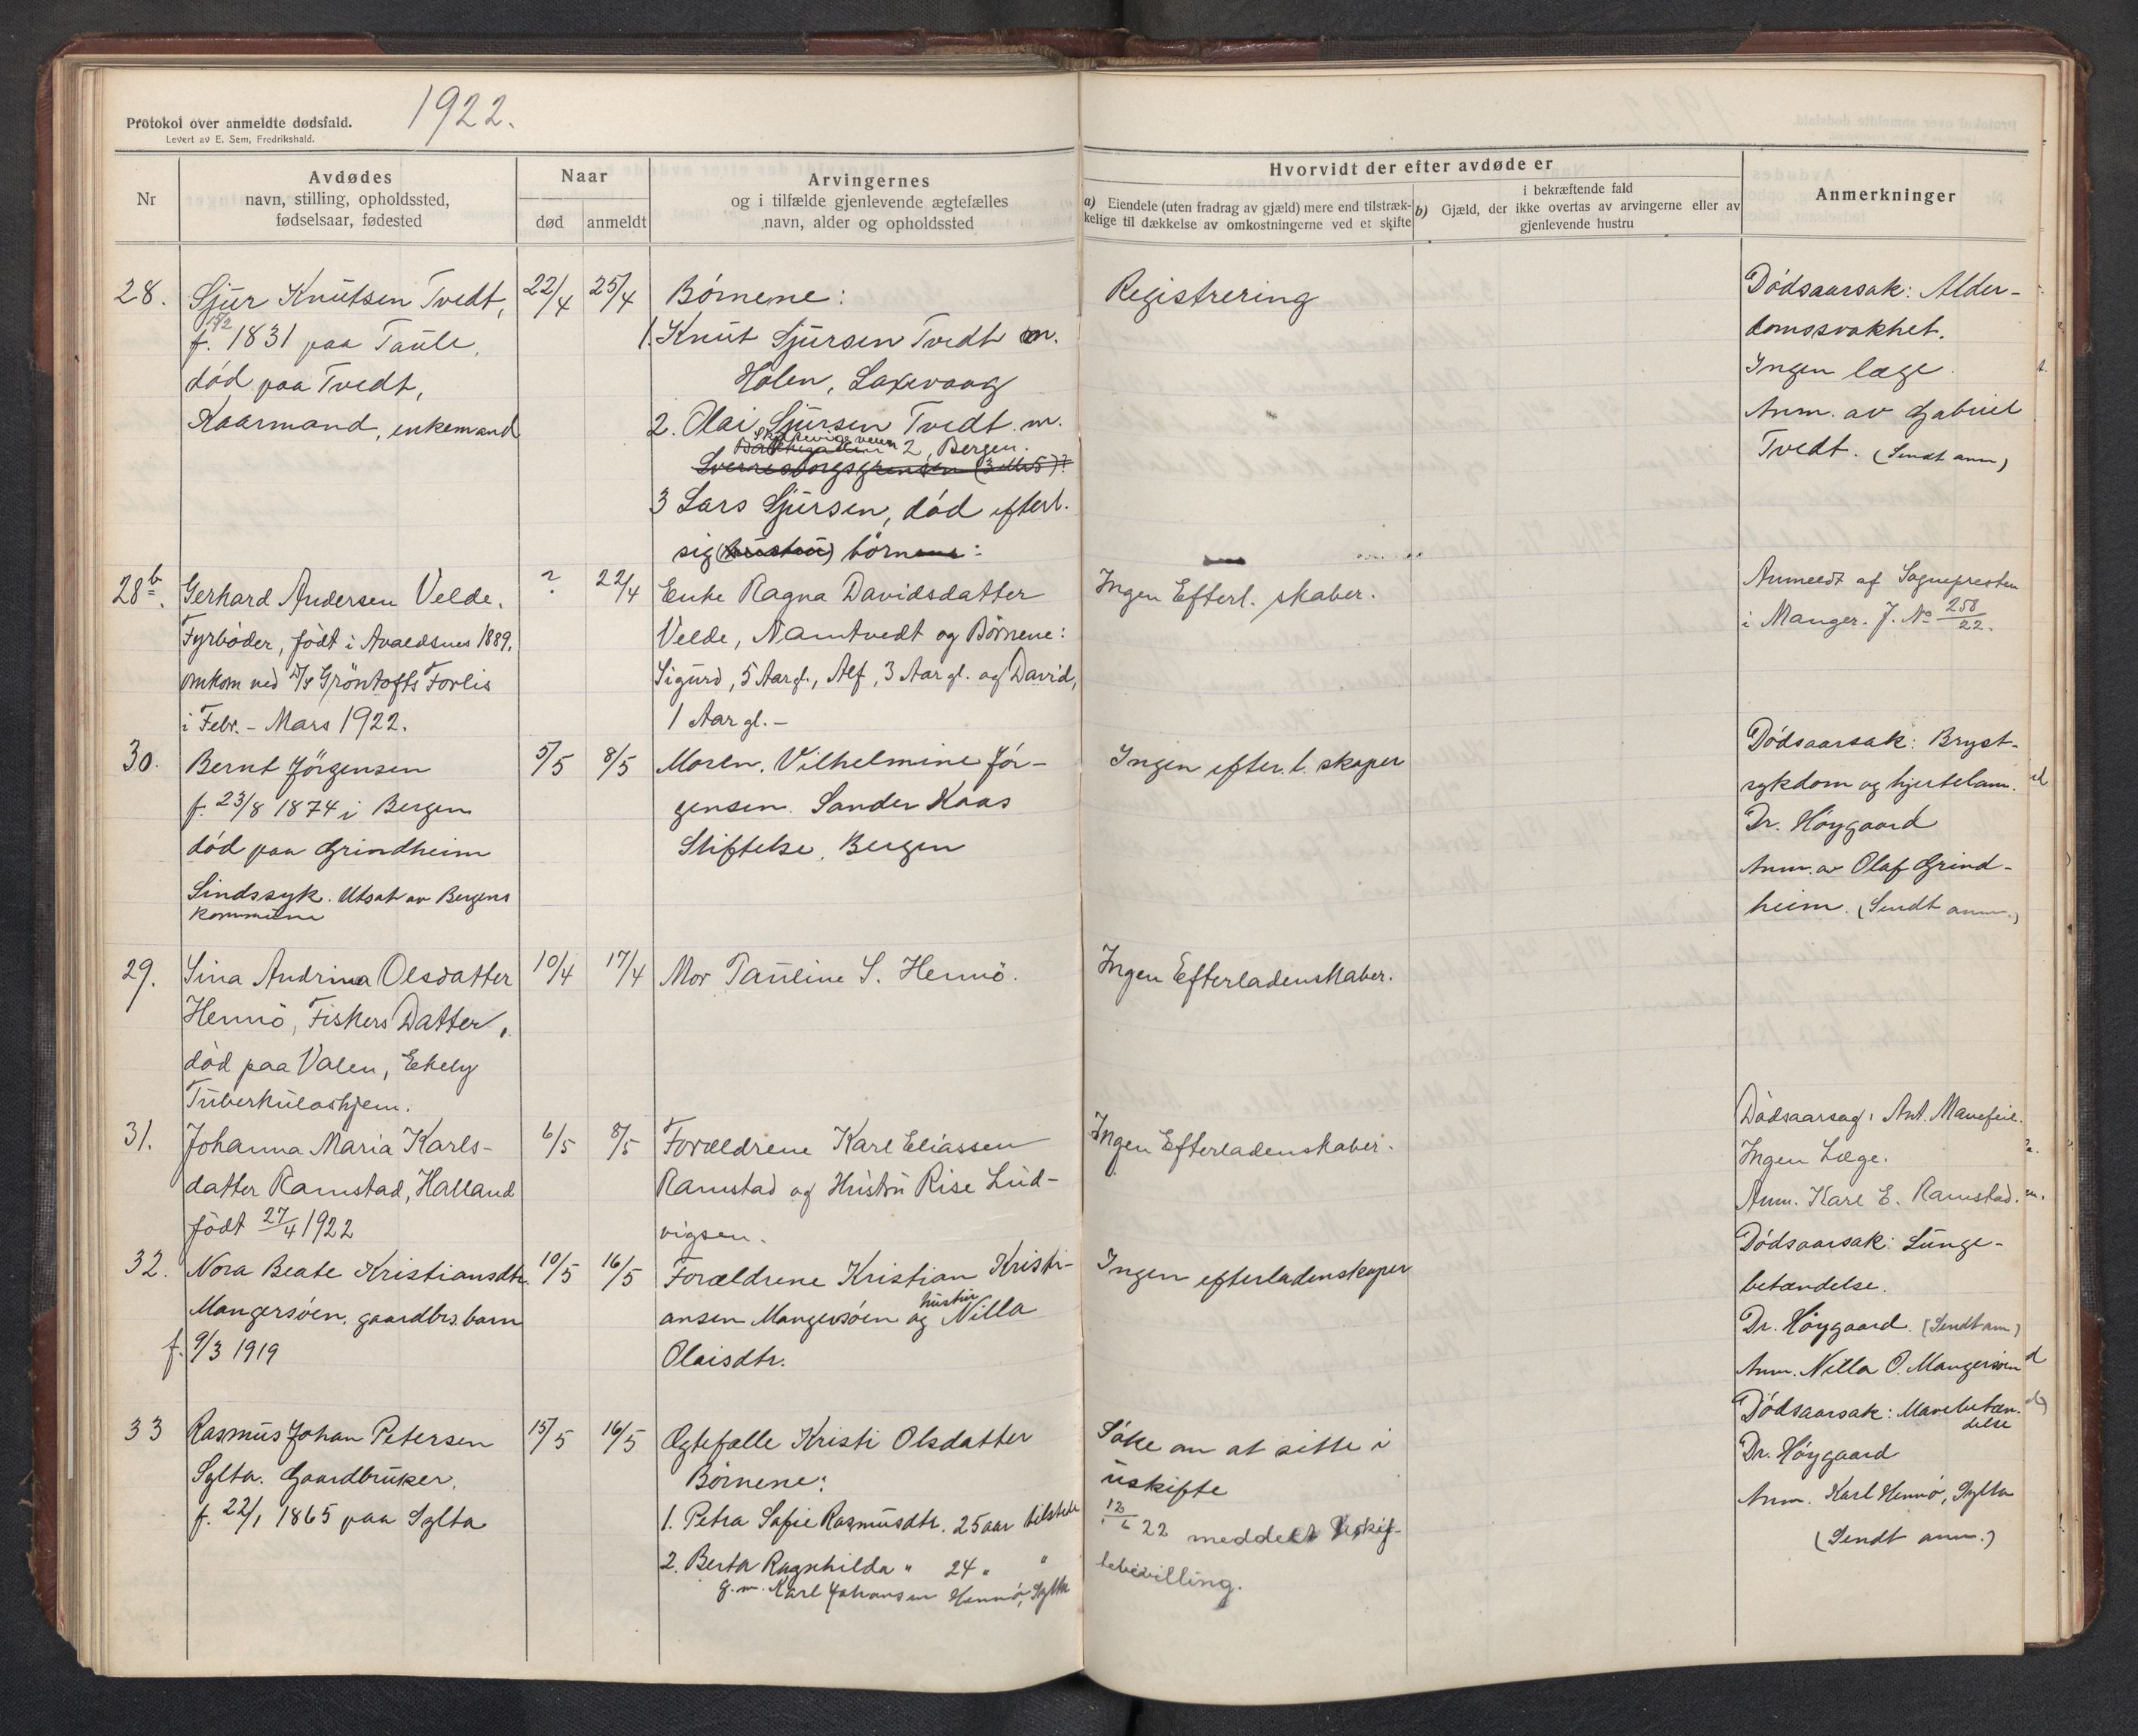 1922.
Protokol over anmeldte dødsfald.
Levert av E. Sem, Fredrikshald.
Nr
Avdødes
navn, stilling, opholdssted,
fødselsaar, fødested
Naar
død
anmeldt
Arvingernes
og i tilfælde gjenlevende ægtefælles
navn, alder og opholdssted
Hvorvidt der efter avdøde er
a) Eiendele (uten fradrag av gjæld) mere end tilstræk-
kelige til dækkelse av omkostningerne ved et skifte
i bekræftende fald
b) Gjæld, der ikke overtas av arvingerne eller av
gjenlevende hustru
Anmerkninger
28.
Sjur Knutsen Tvedt,
f. 1831 paa Taule,
død paa Tvedt,
Kaarmand, enkemand
22/4
25/4
Børnene:
1. Knut Sjursen Tvedt m.
Holen, Laxevaag
2. Olai Sjursen Tvedt m.
2, Bergen.
3 Lars Sjursen, død efterl.
sig (hustru) børnene:
Registrering
Dødsaarsak: Alder-
domssvakhet.
Ingen læge.
Anm. av Gabriel
Tvedt. (Sendt anm)
28b.
Gerhard Andersen Velde.
Fyrbøder, født i Avaldsnes 1889,
omkom ved D/S Grøntofts Forlis
i Febr. - Mars 1922.
?
22/4
Enke Ragna Davidsdatter
Velde, Namtvedt og Børnene:
Sigurd, 5 Aar gl., Alf, 3 Aar gl. og David,
1 Aar gl. -
Ingen Efterl. skaber.
Anmeldt af Sognepresten
i Manger. J. No 258/22.
30.
Bernt Jörgensen
f. 23/8 1874 i Bergen
død paa Grindheim
Sindssyk. Utsat av Bergens
kommune
5/5
8/5
Moren, Vilhelmine Jør-
gensen. Sander Kaas
Stiftelse, Bergen
Ingen efter. l. skaper
Dødsaarsak: Bryst-
sykdom og hjertelam.
Dr. Høygaard
Anm. av Olaf Grind-
heim. (Sendt anm.)
29.
Sina Andrina Olsdatter
Hennö, Fiskers Datter,
død paa Valen, Ekely
Tuberkuloshjem.
10/4
17/4
Mor Pauline S. Hennö.
Ingen Efterladenskaber.
31.
Johanna Maria Karls-
datter Ramstad, Halland
født 27/4 1922
6/5
8/5
Forældrene Karl Eliassen
Ramstad og Hustru Rise Lud-
vigsen.
Ingen Efterladenskaber.
Dødsaarsag: Ant. Mavefeil.
Ingen Læge.
Anm. Karl E. Ramstad.
32.
Nora Beate Kristiansdtr.
Mangersøen, gaardbrs. barn
f. 9/3 1919
10/5
16/5
Forældrene Kristian Kristi-
ansen Mangersøen og hustru Nilla
Olaisdtr.
Ingen efterladenskaper
Dødsaarsak: Lunge-
betændelse.
Dr. Høygaard. (Sendt anm)
Anm. Nilla O. Mangersøen
33
Rasmus Johan Petersen
Sylta. Gaardbruker.
f. 22/1 1865 paa Sylta
15/5
16/5
Ægtefælle Kristi Olsdatter
Børnene:
1. Petra Sofie Rasmusdtr. 25 aar tilstede
2. Berta Ragnhilda " 24 " "
g. m. Karl Johansen Hennø, Sylta
Søke om at sitte i
uskifte
12/6 22 meddelt Uskif-
tebevilling.
Dødsaarsak: Mavebetæn-
delse
Dr. Høygaard
Anm. Karl Hennø, Sylta
(Sendt anm.)